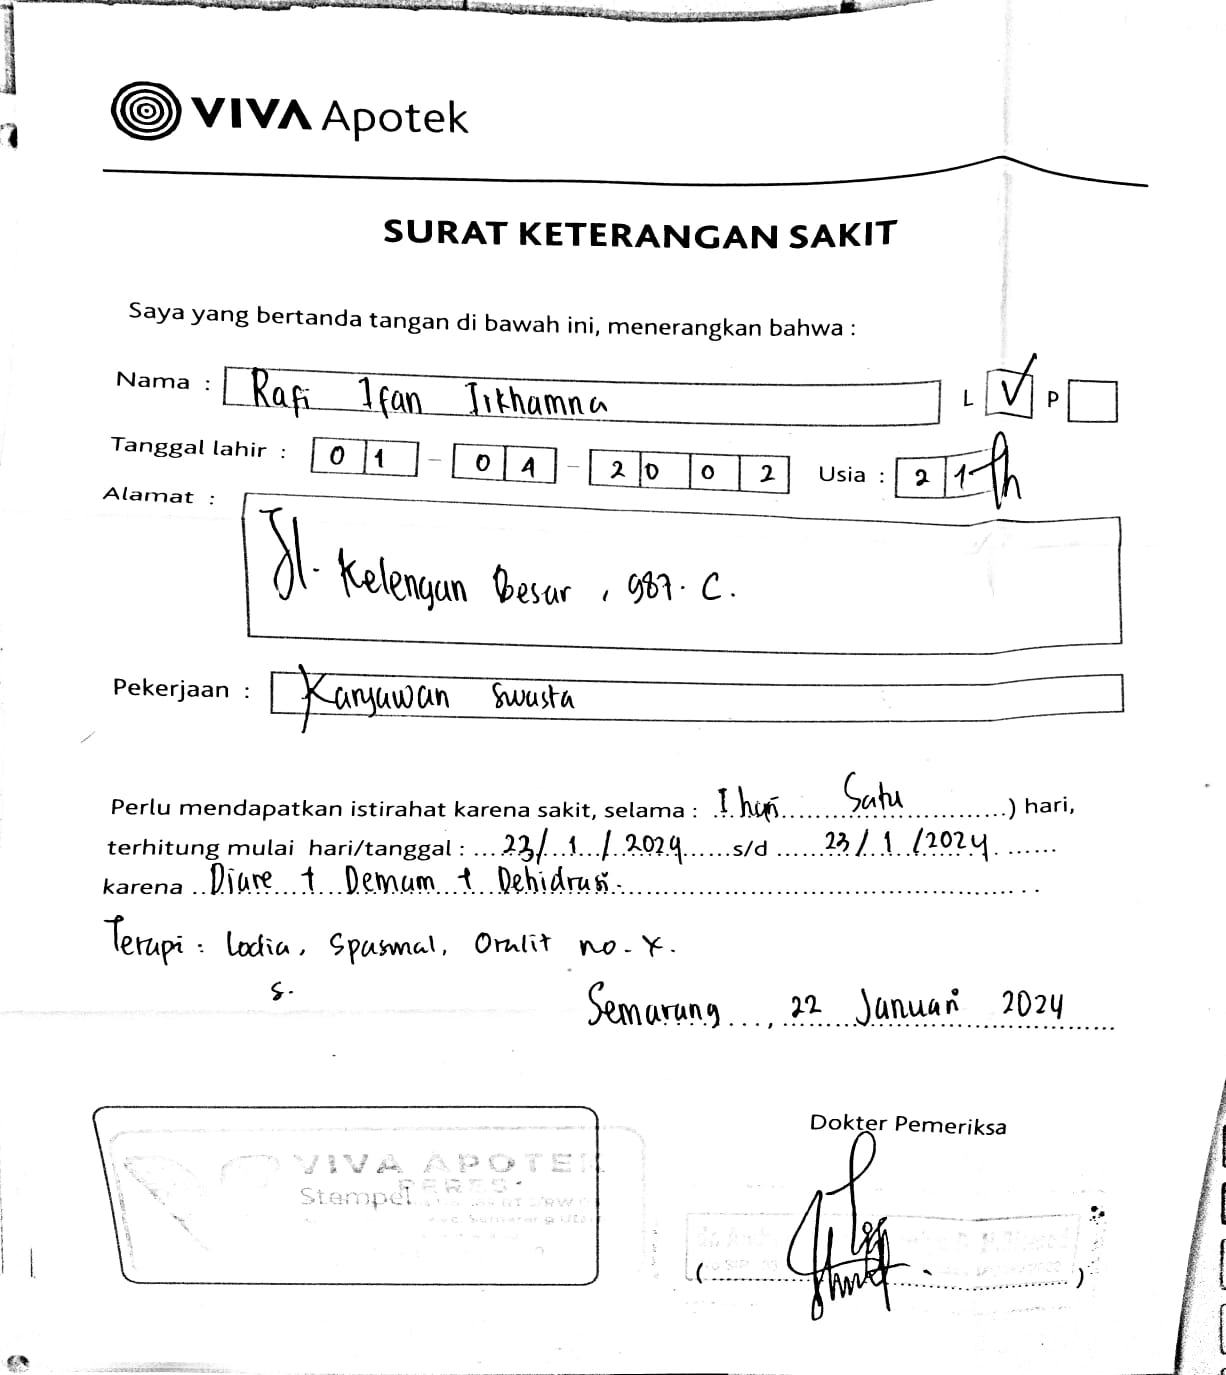 VIVA Apotek
SURAT KETERANGAN SAKIT
Saya yang bertanda tangan di bawah ini, menerangkan bahwa :
Nama : Rafi Ifan Jikhamna L ✓ P
Tanggal lahir : 01 - 04 - 2002 Usia : 21 th
Alamat :
Jl. Kelengan Besar, 987. C.
Pekerjaan : Karyawan Swasta
Perlu mendapatkan istirahat karena sakit, selama : 1 hari Satu ) hari,
terhitung mulai hari/tanggal : 23/1/2024 s/d 23/1/2024
karena Diare + Demam + Dehidrasi.
Terapi : Lodia, Spasmal, Oralit no. X.
S.
Semarang, 22 Januari 2024
Dokter Pemeriksa
VIVA APOTEK
Stempel PERES
( )